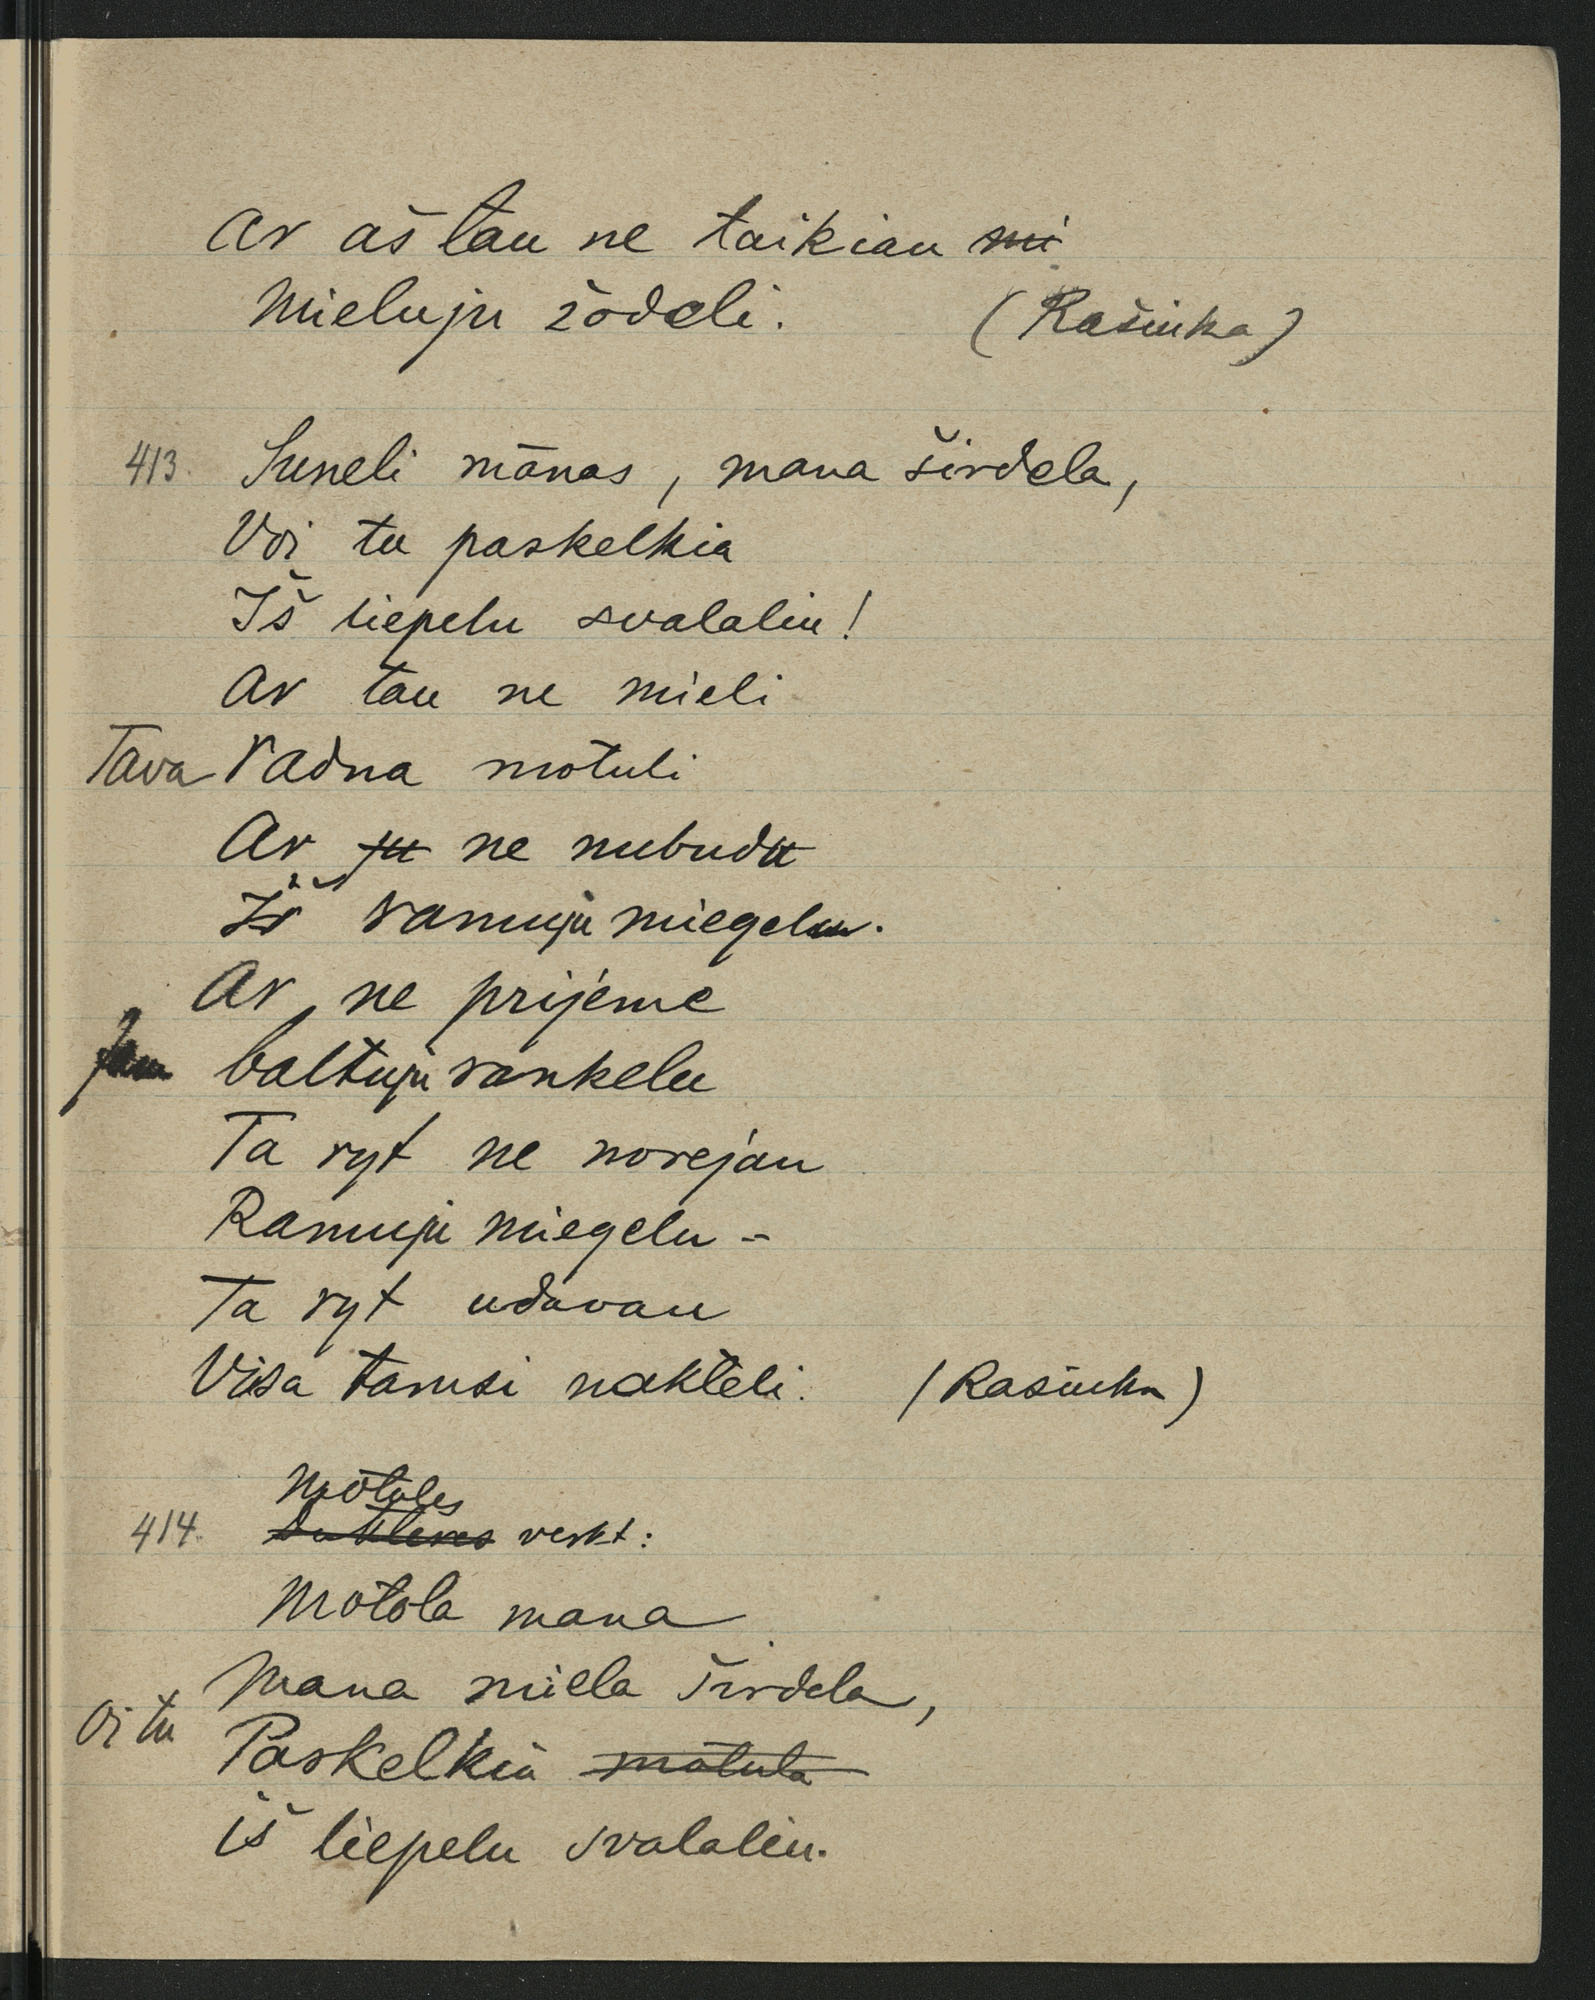 Ar aš tau ne taikiau mi
Mieluju žōdeli. (Rašiuka)
413. Suneli mānas, mana širdela,
Voi tu paskelkia
Iš liepelu svalaliu!
Ar tau ne mieli
Tava radna mōtuli
Ar ju ne nubudu
Iš ramuju miegelu.
Ar, ne prijeme
Jau baltuju rankelu
Ta ryt ne norejau
Ramuju miegelu -
Ta ryt udavau
Visa tamsi nakteli. (Rašiuka)
Mōtoles
414. verkt:
Mōtola mana
Mana miela širdela,
Oi tu Paskelkia mōtuta
iš liepelu svalaliu.